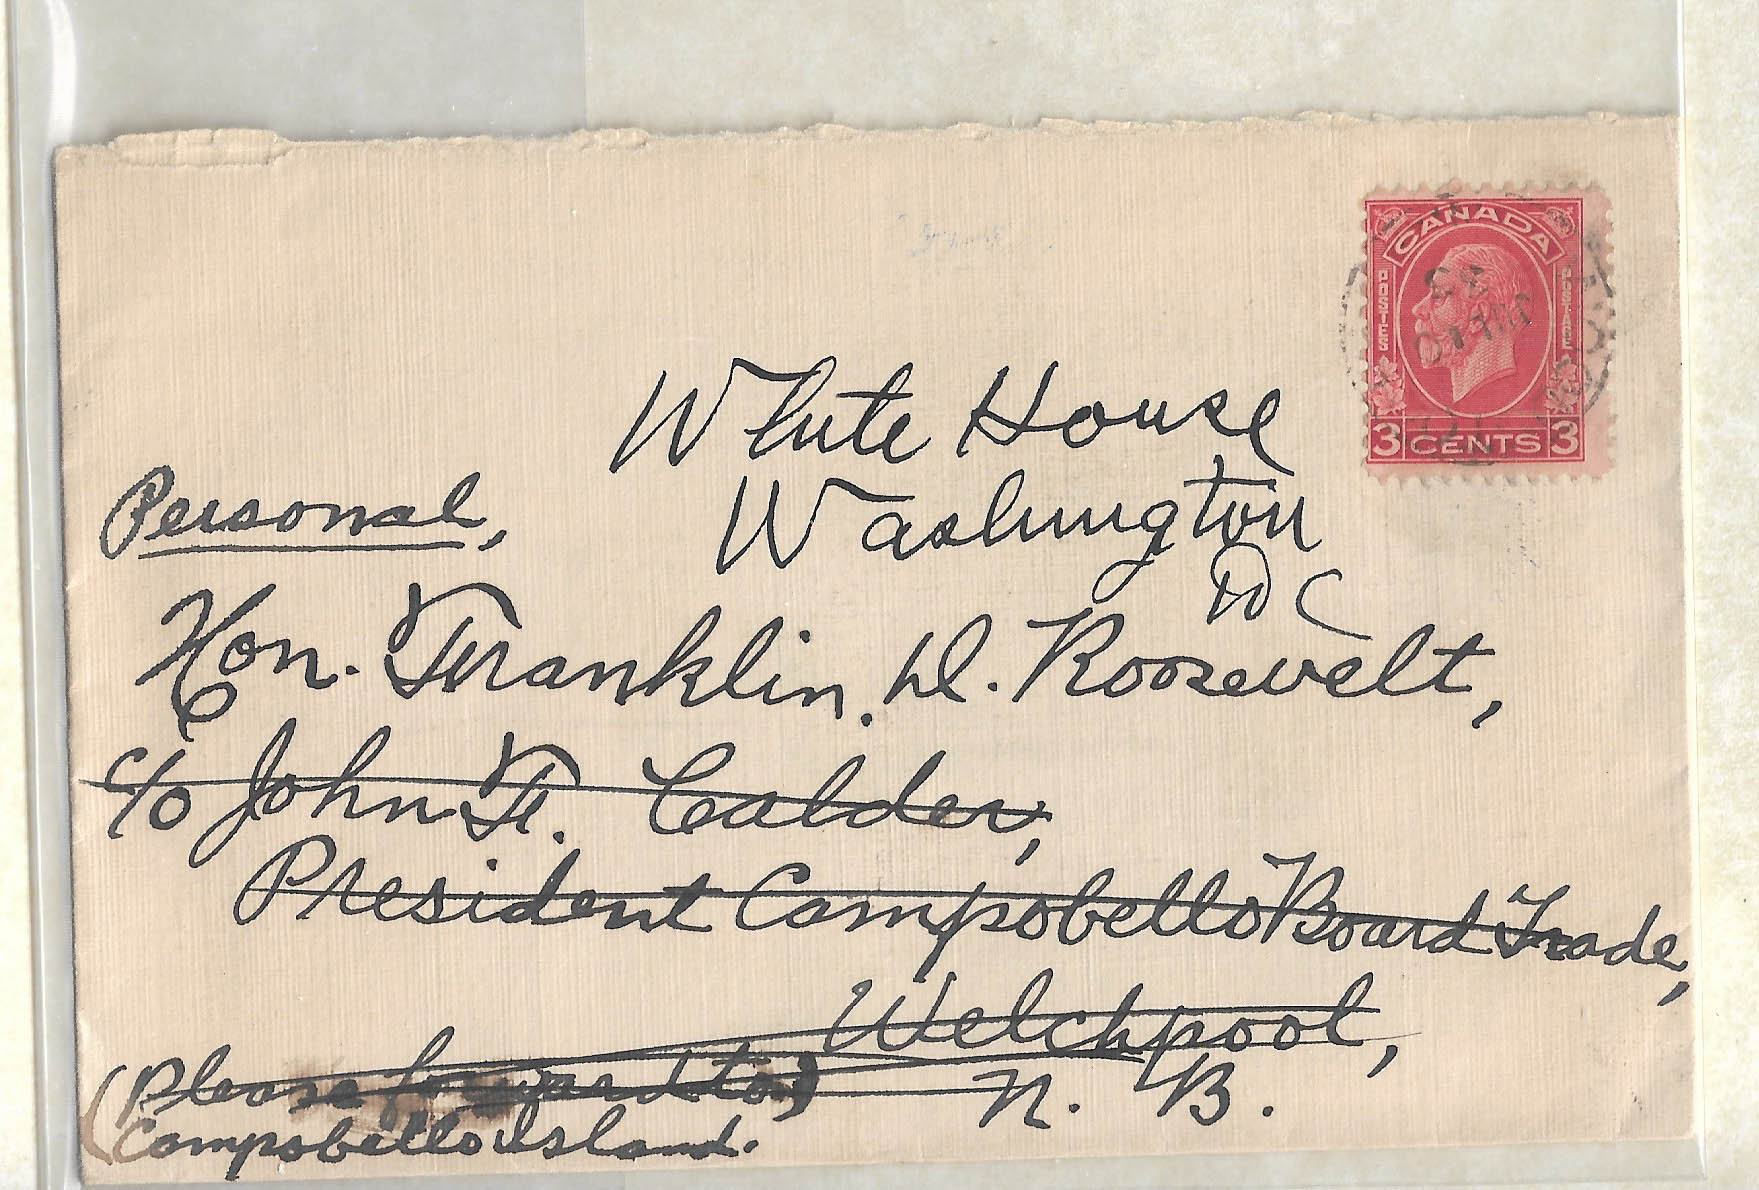 CANADA
POSTES POSTAGE
33
JUL 10
3 CENTS 3
White House
Washington
D C
Personal,
Hon. Franklin. D. Roosevelt,
c/o John F. Calder,
President Campobello Board Trade,
Welchpool,
N. B.
(Please forward to)
Campobello Island.